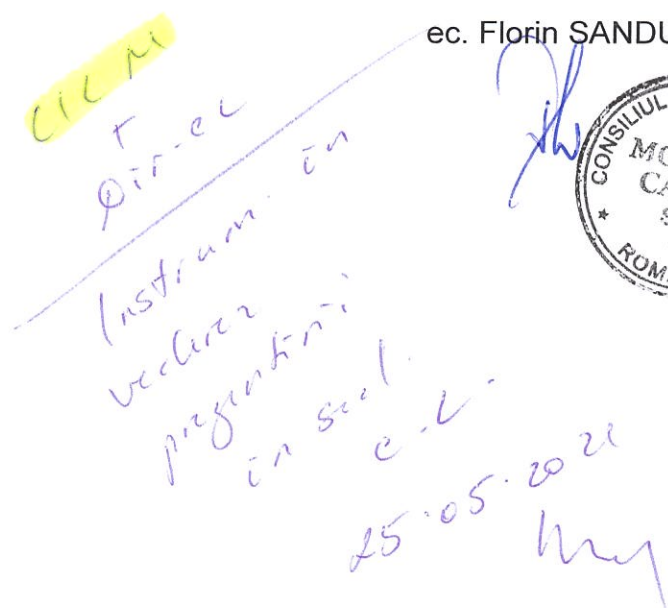 ec. Florin SANDU
CONSILIUL
ROM
CICM
+
Dir. ec
Instrum. în
vederea
prezentării
în șed.
C.L.
25.05.2021